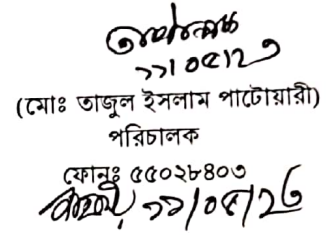 ১১/০৫/২৩
(মোঃ তাজুল ইসলাম পাটোয়ারী)
পরিচালক
ফোনঃ ৫৫০২৮৪০৩
১১/০৫/২৩